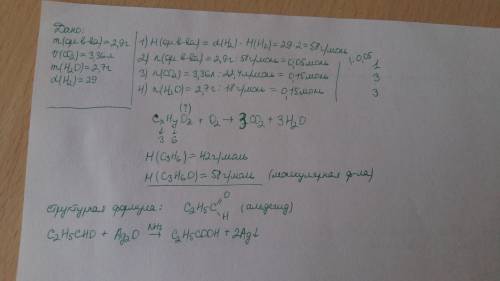 Дано:
m(орг.в-ва)=2,9г
V(CO₂)=3,36л
m(H₂O)=2,7г
d(H₂)=29
1) M(орг.в-ва) = d(H₂) · M(H₂) = 29·2=58г/моль
2) n(орг.в-ва) = 2,9г : 58г/моль = 0,05моль
3) n(CO₂) = 3,36л : 22,4л/моль = 0,15моль
4) n(H₂O) = 2,7г : 18г/моль = 0,15моль
: 0,05
1
3
3
(?)
CₓHyOz + O₂ → 3CO₂ + 3H₂O
↓ ↓
3 6
M(C₃H₆) = 42г/моль
M(C₃H₆O) = 58г/моль (молекулярная ф-ла)
структурная формула: C₂H₅C O H (альдегид)
C₂H₅CHO + Ag₂O NH₃ → C₂H₅COOH + 2Ag↓